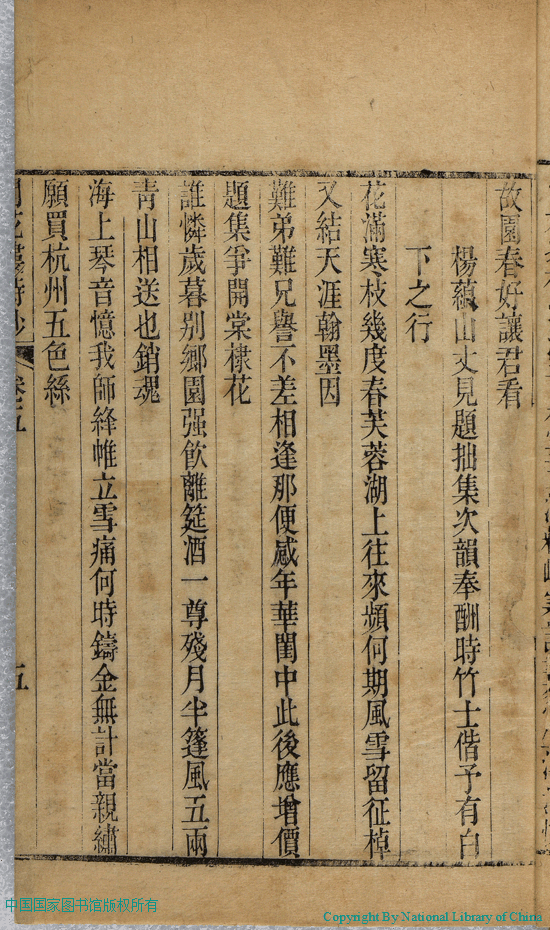 故園春好讓君看
楊蘊山丈見題拙集次韻奉酬時竹士偕予有白
下之行
花滿寒枝幾度春芙蓉湖上往來頻何期風雪留征棹
又結天涯翰墨因
難弟難兄譽不差相逢那便感年華閨中此後應增價
題集爭開棠棣花
誰憐歲暮别鄉園强飲離筵酒一尊殘月半篷風五兩
青山相送也銷魂
海上琴音憶我師絳帷立雪痛何時鑄金無計當親繡
願買杭州五色絲
卷五
五
中国国家图书馆版权所有
Copyright By National Library of China